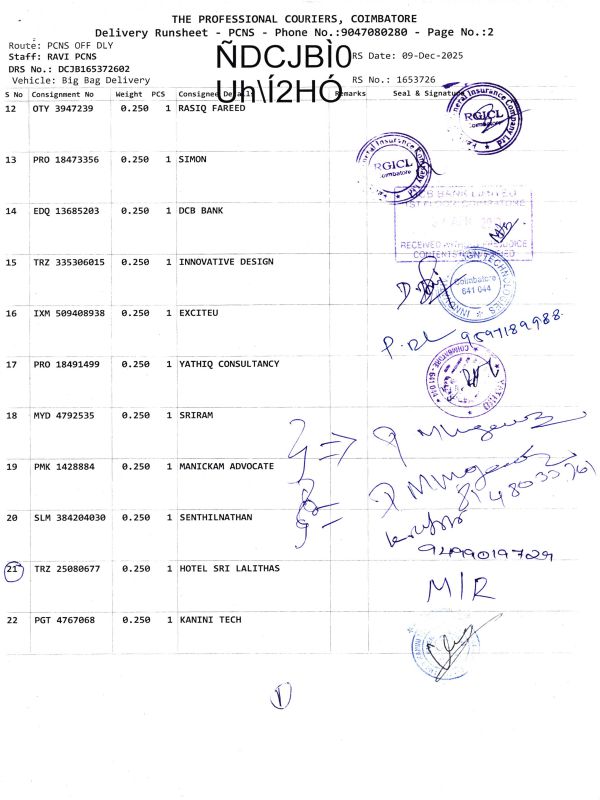 THE PROFESSIONAL COURIERS, COIMBATORE
Delivery Runsheet - PCNS - Phone No.:9047080280 - Page No.:2
Route: PCNS OFF DLY
Staff: RAVI PCNS
ÑDCJBÌ0
RS Date: 09-Dec-2025
DRS No.: DCJB165372602
Vehicle: Big Bag Delivery
Uh\Í2HÓ
RS No.: 1653726
S No Consignment No Weight PCS Consignee Details Remarks Seal & Signature
12 OTY 3947239 0.250 1 RASIQ FAREED
RGICL
13 PRO 18473356 0.250 1 SIMON
RGICL
14 EDQ 13685203 0.250 1 DCB BANK
DCB BANK LIMITED
15 TRZ 335306015 0.250 1 INNOVATIVE DESIGN
Coimbatore
641 044
16 IXM 509408938 0.250 1 EXCITEU
9597189988
17 PRO 18491499 0.250 1 YATHIQ CONSULTANCY
18 MYD 4792535 0.250 1 SRIRAM
19 PMK 1428884 0.250 1 MANICKAM ADVOCATE
20 SLM 384204030 0.250 1 SENTHILNATHAN
21 TRZ 25080677 0.250 1 HOTEL SRI LALITHAS
M/R
22 PGT 4767068 0.250 1 KANINI TECH